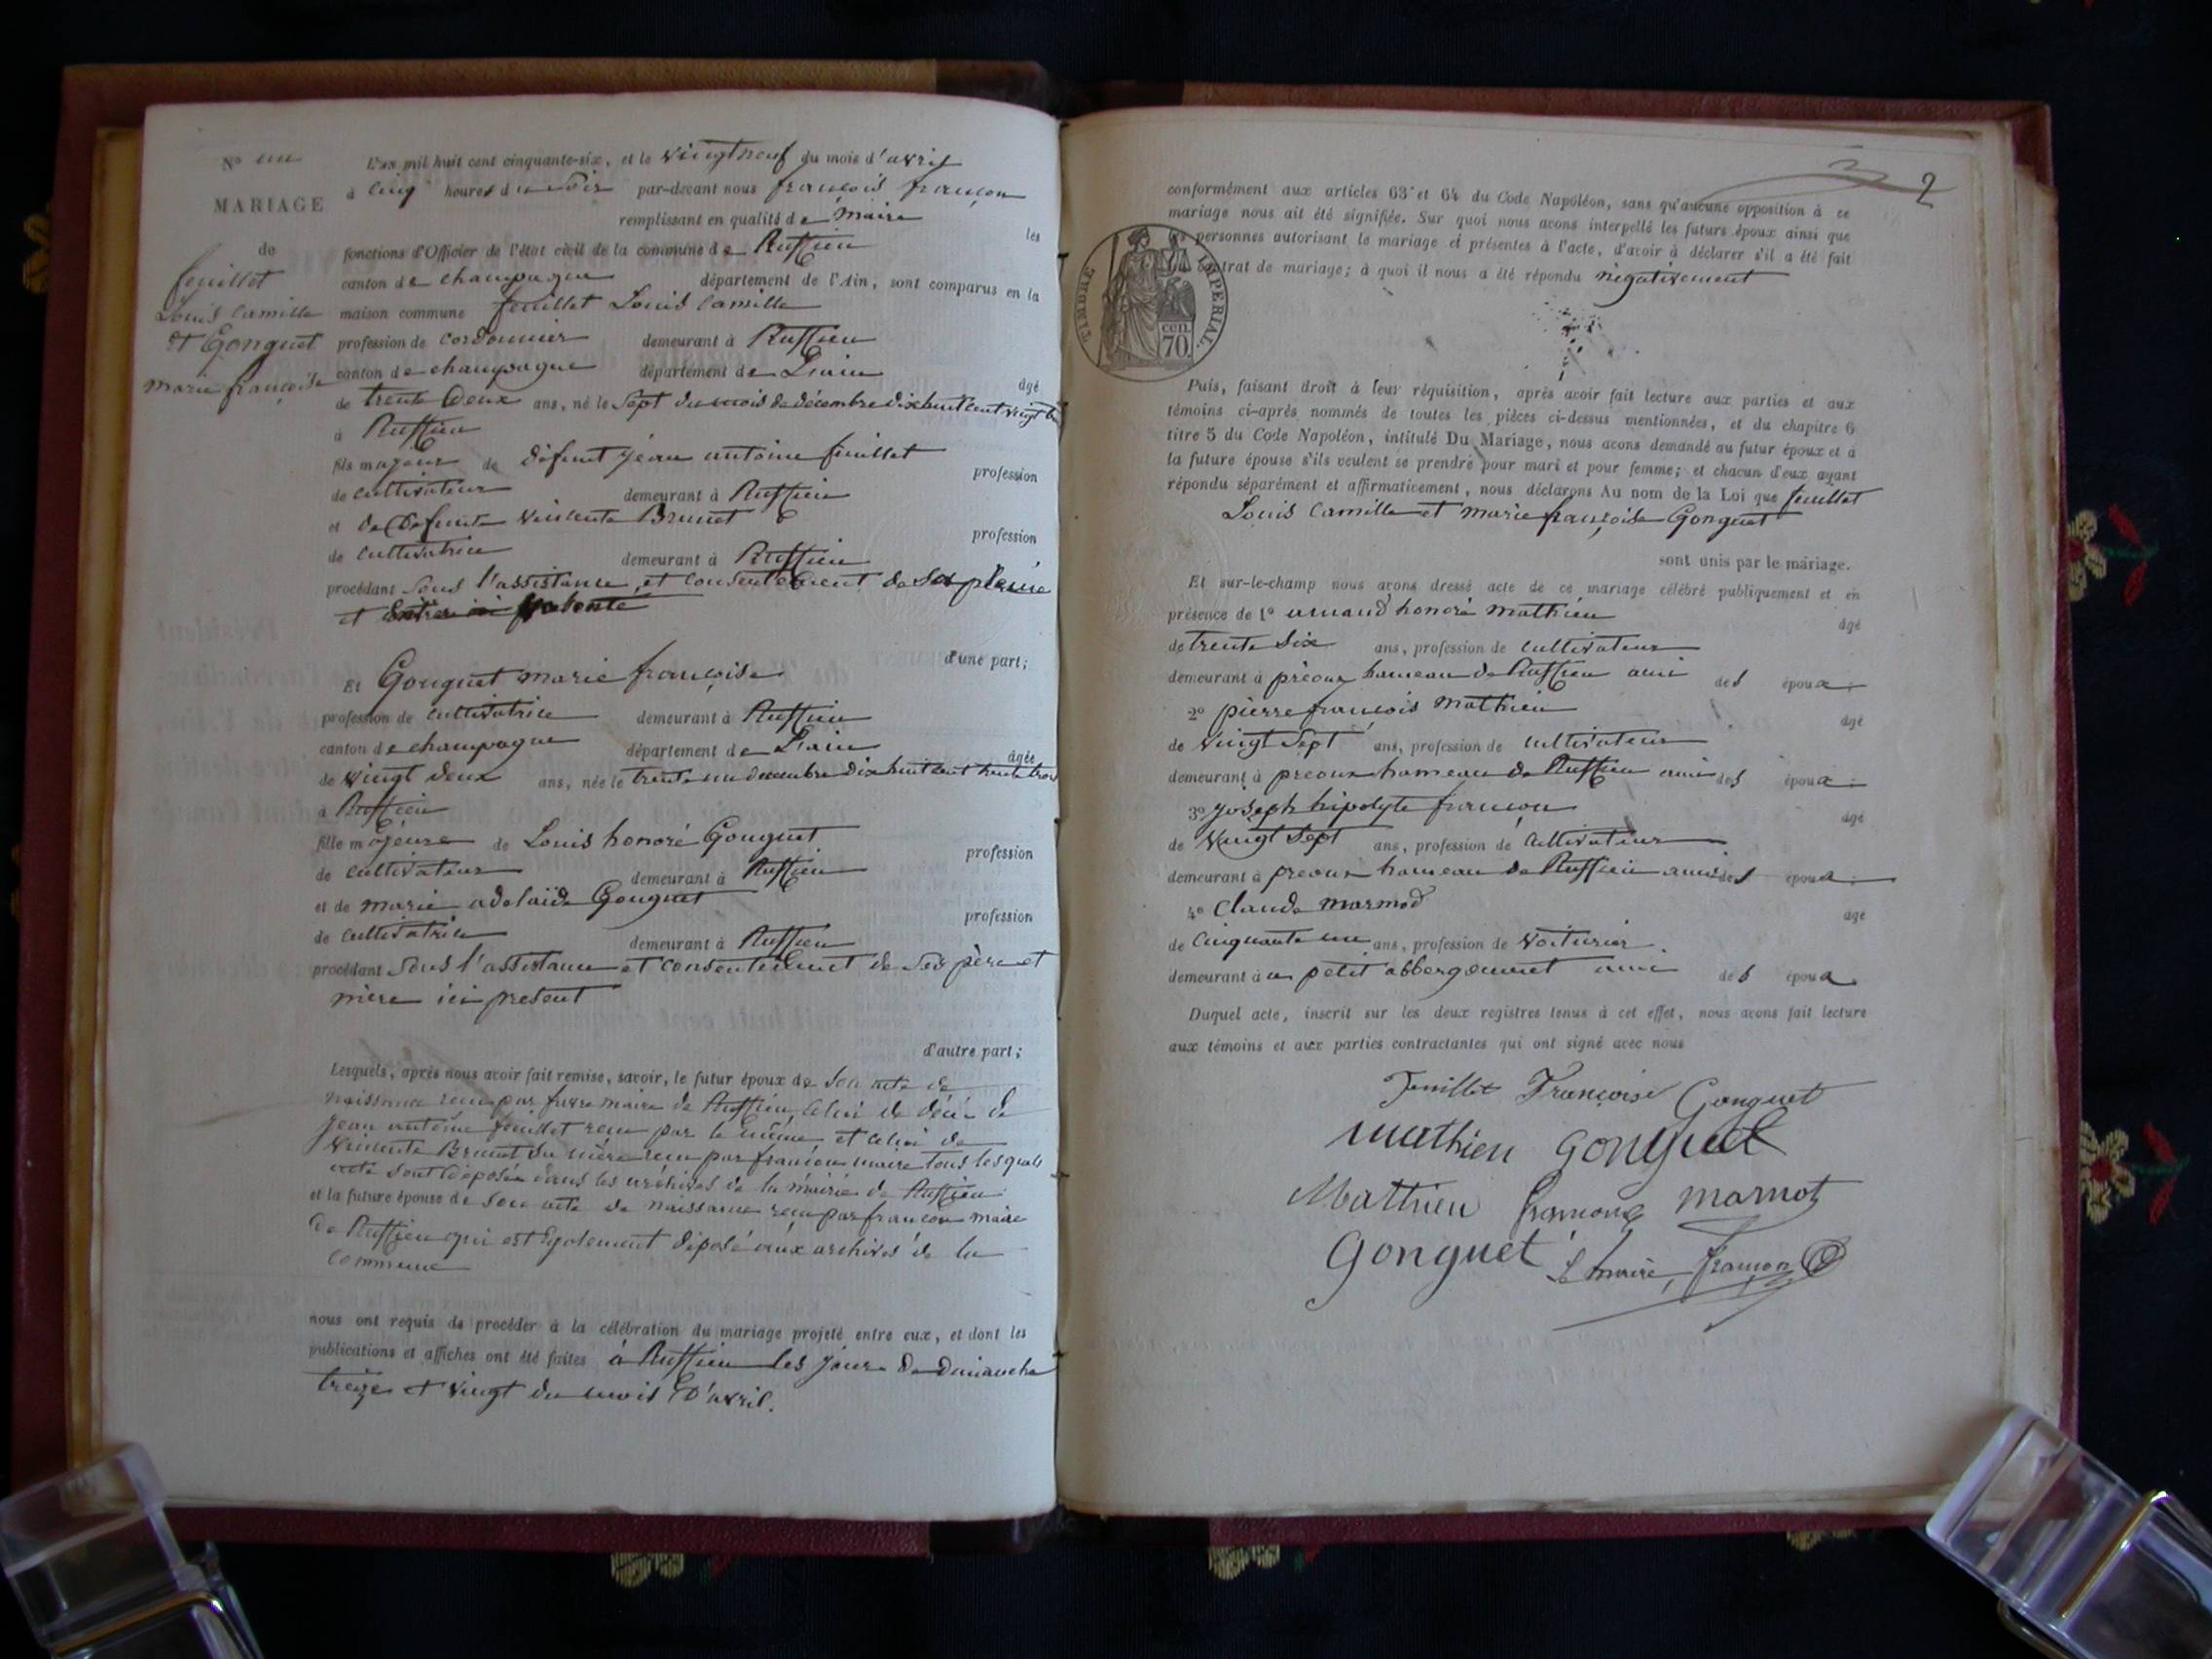 N° un
MARIAGE
de
feuillet
Louis Camille
et Gonguet
marie françoise
L'an mil huit cent cinquante-six, et le vingt neuf du mois d'avril
à cinq heures du soir par-devant nous françois françon
remplissant en qualité de maire les
fonctions d'Officier de l'état civil de la commune de Ruffieu
canton de champagne département de l'Ain, sont comparus en la
maison commune feuillet Louis Camille
profession de cordonnier demeurant à Ruffieu
canton de champagne département de L'ain âgé
de trente deux ans, né le Sept du mois de décembre dix huit cent vingt
à Ruffieu
fils majeur de défunt jean antoine feuillet profession
de cultivateur demeurant à Ruffieu
et de Defunte Brunet profession
de cultivatrice demeurant à Ruffieu
procédant Sous l'assistance et consentement de Sa pleine
et Entière volonté
d'une part;
Et Gonguet marie françoise
profession de cultivatrice demeurant à Ruffieu
canton de champagne département de L'ain âgée
de vingt deux ans, née le trente un decembre dix huit cent trente trois
à Ruffieu
fille majeure de Louis honoré Gonguet profession
de cultivateur demeurant à Ruffieu
et de marie adelaïde Gonguet profession
de cultivatrice demeurant à Ruffieu
procédant Sous l'assistance et consentement de Ses père et
mère ici present
d'autre part;
Lesquels, après nous avoir fait remise, savoir, le futur époux de Son acte de
naissance recu par maire de Ruffieu, Celui de décés de
jean antoine feuillet recu par le même, et celui de
Brunet Sa mère recu par françon maire tous lesquels
acte Sont déposés dans les archives de la mairie de Ruffieu
et la future épouse de Son acte de naissance recu par françon maire
de Ruffieu qui est Egalement déposé aux archives de la
Commune
nous ont requis de procéder à la célébration du mariage projeté entre eux, et dont les
publications et affiches ont été faites à Ruffieu les jours de dimanche
treize et vingt du mois D'avril.
2
conformément aux articles 63 et 64 du Code Napoléon, sans qu'aucune opposition à ce
mariage nous ait été signifiée. Sur quoi nous avons interpellé les futurs époux ainsi que
les personnes autorisant le mariage et présentes à l'acte, d'avoir à déclarer s'il a été fait
contrat de mariage; à quoi il nous a été répondu négativement
TIMBRE IMPERIAL
CEN. 70.
Puis, faisant droit à leur réquisition, après avoir fait lecture aux parties et aux
témoins ci-après nommés de toutes les pièces ci-dessus mentionnées, et du chapitre 6
titre 5 du Code Napoléon, intitulé Du Mariage, nous avons demandé au futur époux et à
la future épouse s'ils veulent se prendre pour mari et pour femme; et chacun d'eux ayant
répondu séparément et affirmativement, nous déclarons Au nom de la Loi que feuillet
Louis Camille et marie françoise Gonguet
sont unis par le mariage.
Et sur-le-champ nous avons dressé acte de ce mariage célébré publiquement et en
présence de 1° honoré mathieu âgé
de trente Six ans, profession de cultivateur
demeurant à hameau de Ruffieu ami des époux
2° pierre françois Mathieu âgé
de vingt Sept ans, profession de cultivateur
demeurant à hameau de Ruffieu ami des époux
3° joseph hipolyte françon âgé
de vingt Sept ans, profession de cultivateur
demeurant à hameau de Ruffieu ami des époux
4° Claude marmod âgé
de Cinquante un ans, profession de voiturier.
demeurant à au petit abbergement ami des époux
Duquel acte, inscrit sur les deux registres tenus à cet effet, nous avons fait lecture
aux témoins et aux parties contractantes qui ont signé avec nous
feuillet Françoise Gonguet
Mathieu gonguet
Mathieu françon marmot
gonguet Le maire, françon